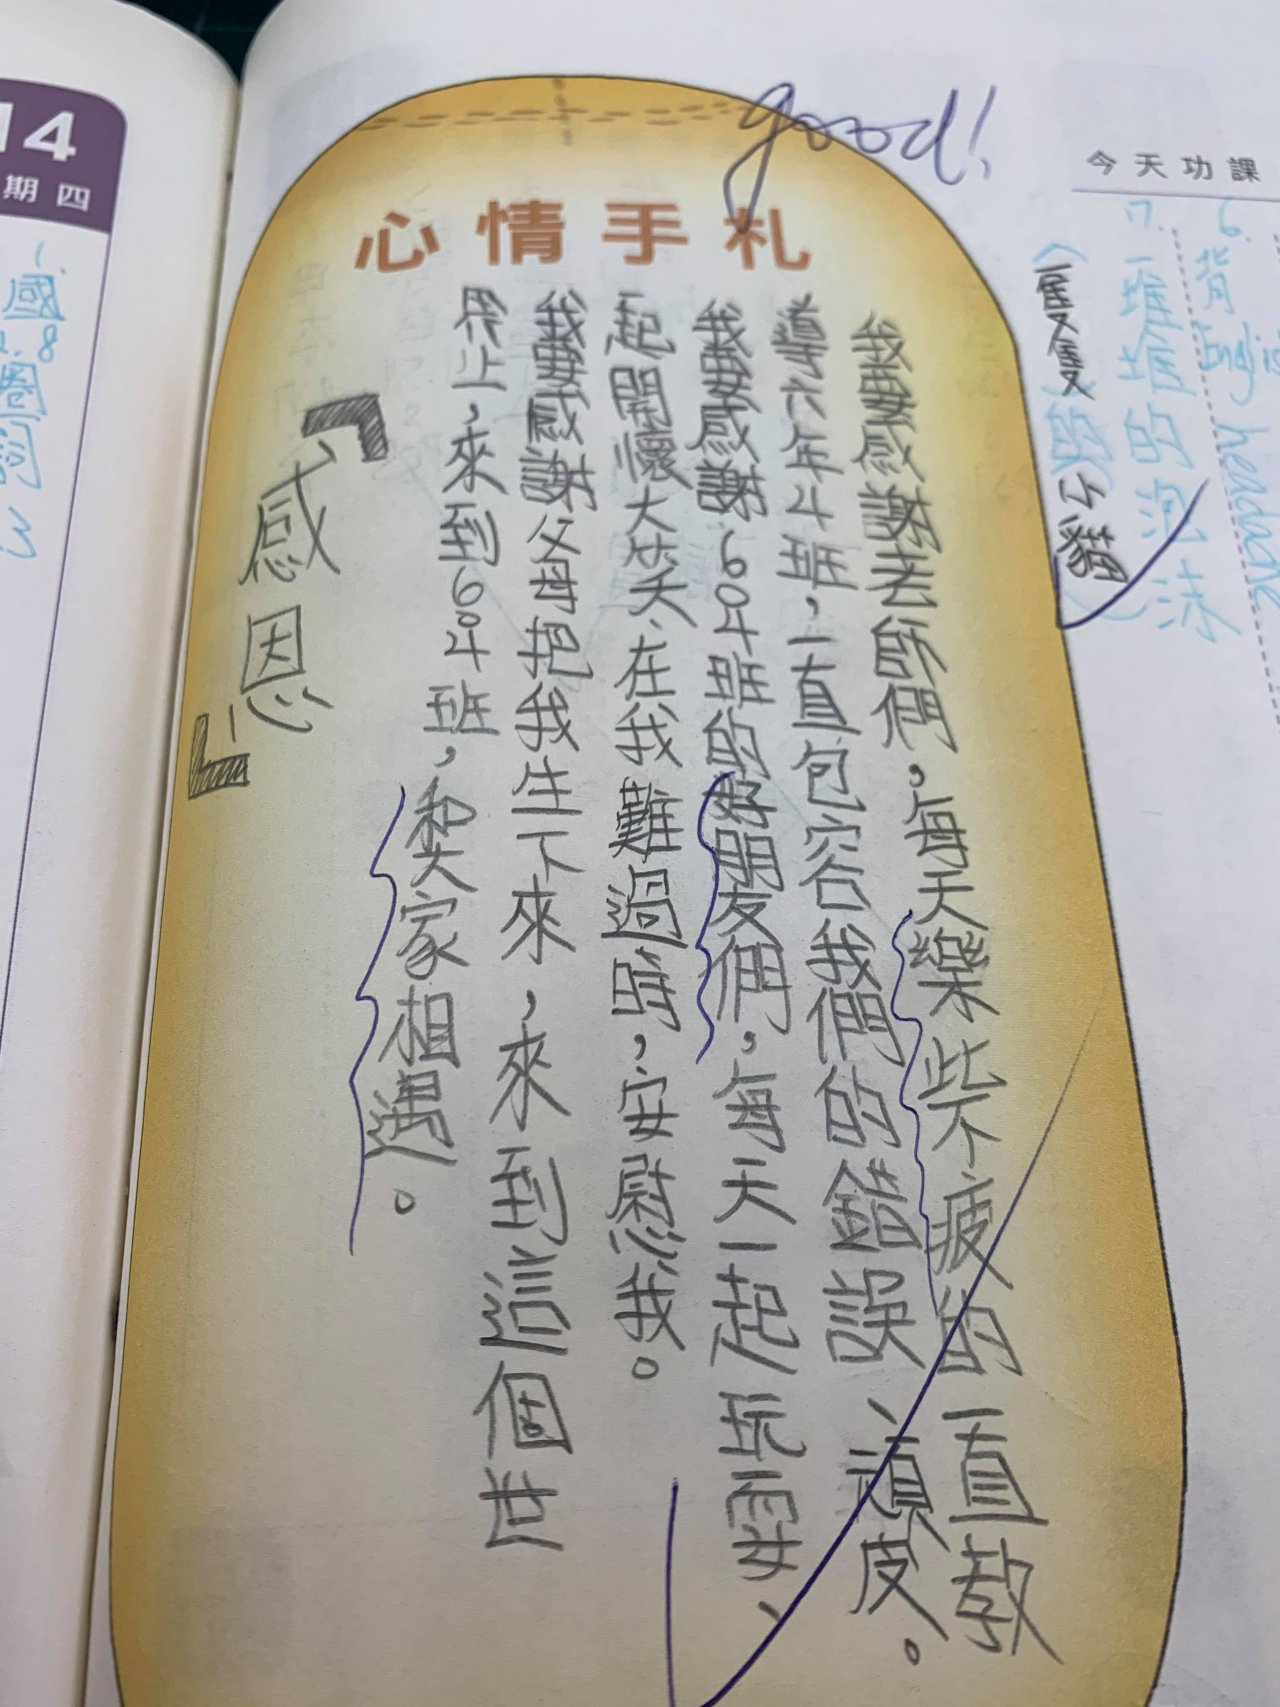 good!
今天功課
6.背時 headache
7.一堆堆的泡沫
(一隻隻的小貓)
心情手札
我要感謝老師們，每天樂此不疲的一直教
導六年4班，一直包容我們的錯誤、頑皮。
我要感謝604班的好朋友們，每天一起玩耍、一
起開懷大笑、在我難過時，安慰我。
我要感謝父母把我生下來，來到這個世
界上，來到604班，和大家相遇。
「感恩」
14
期四
1.國8